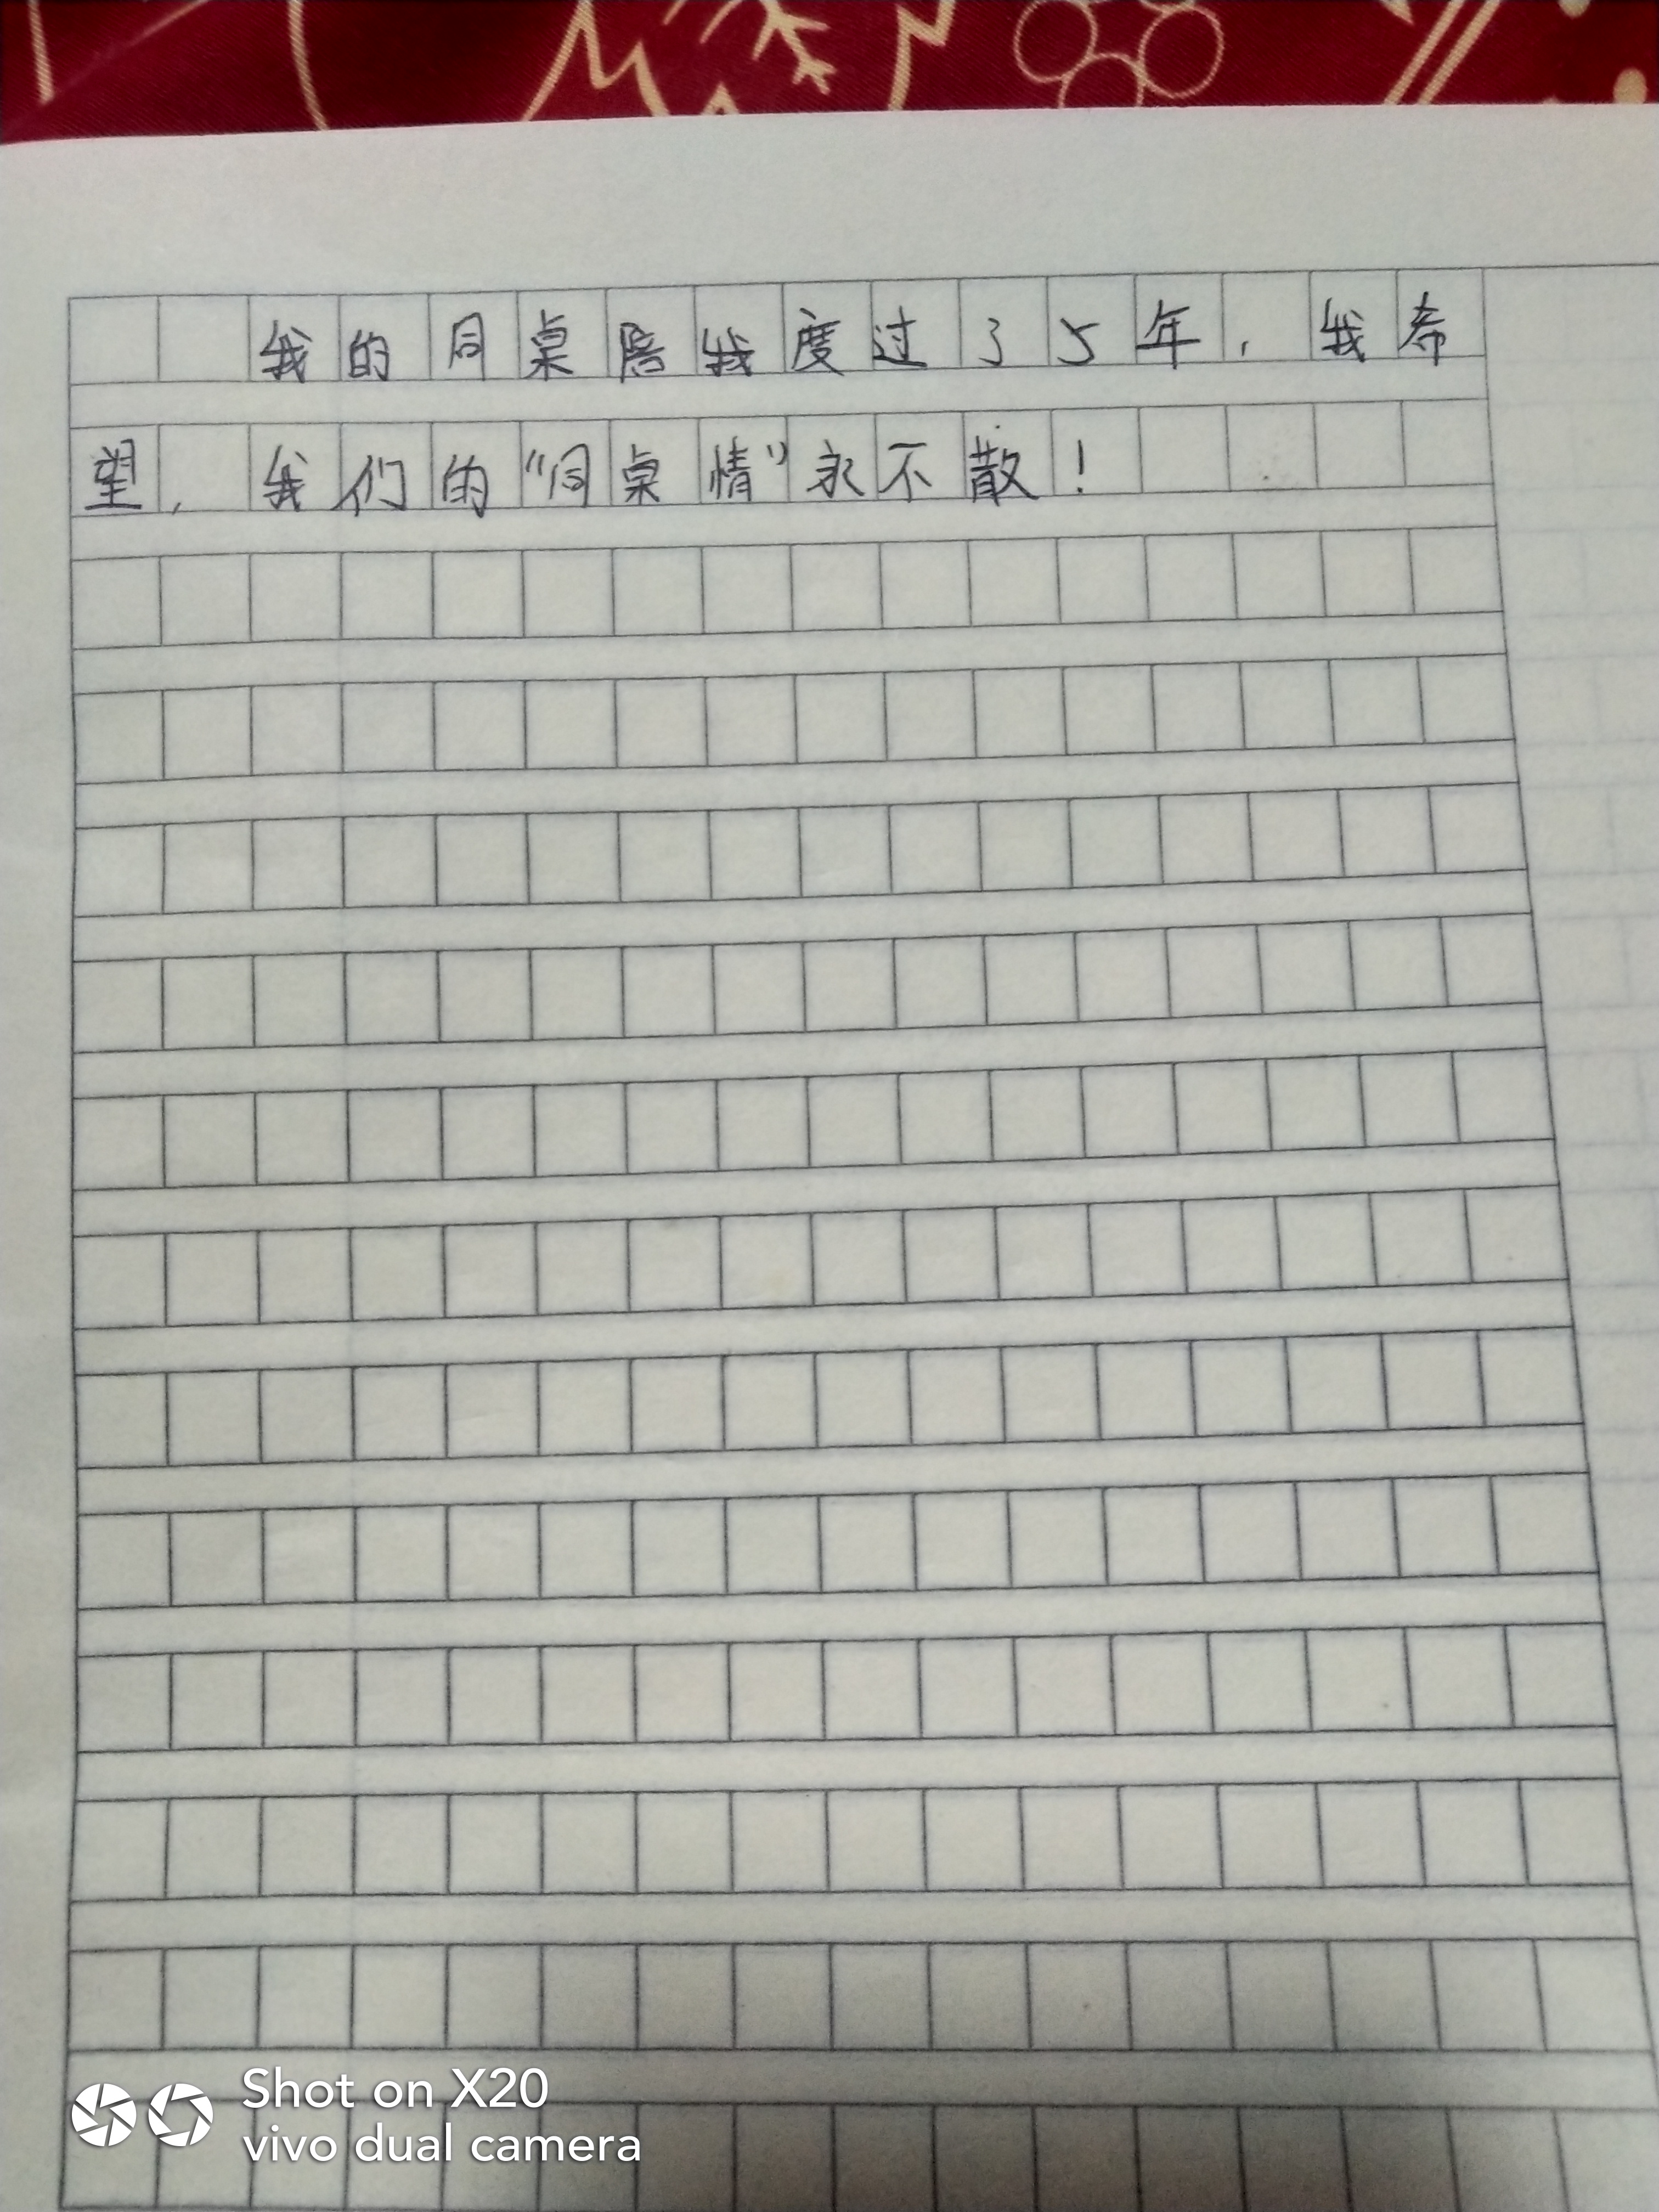 我的同桌陪我度过了5年，我希
望，我们的“同桌情”永不散！
Shot on X20
vivo dual camera